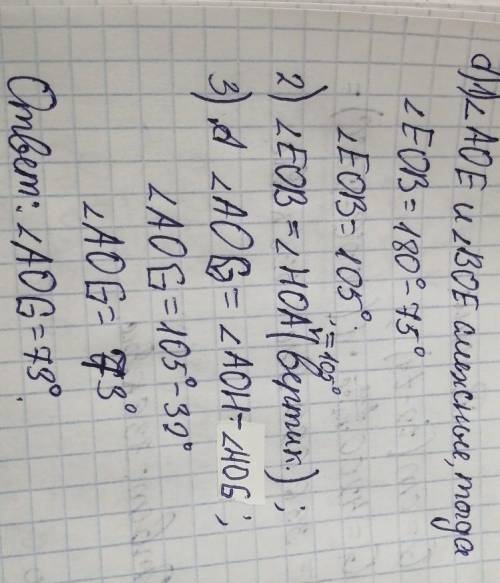 d) 1) ∠AOE и ∠BOE смежные, тогда
∠EOB = 180° - 75°
∠EOB = 105°.
2) ∠EOB = ∠HOA (вертик.) ;
= 105°
3) ∠AOG = ∠AOH - ∠HOG ;
∠AOG = 105° - 32°
∠AOG = 73°
Ответ: ∠AOG = 73°.